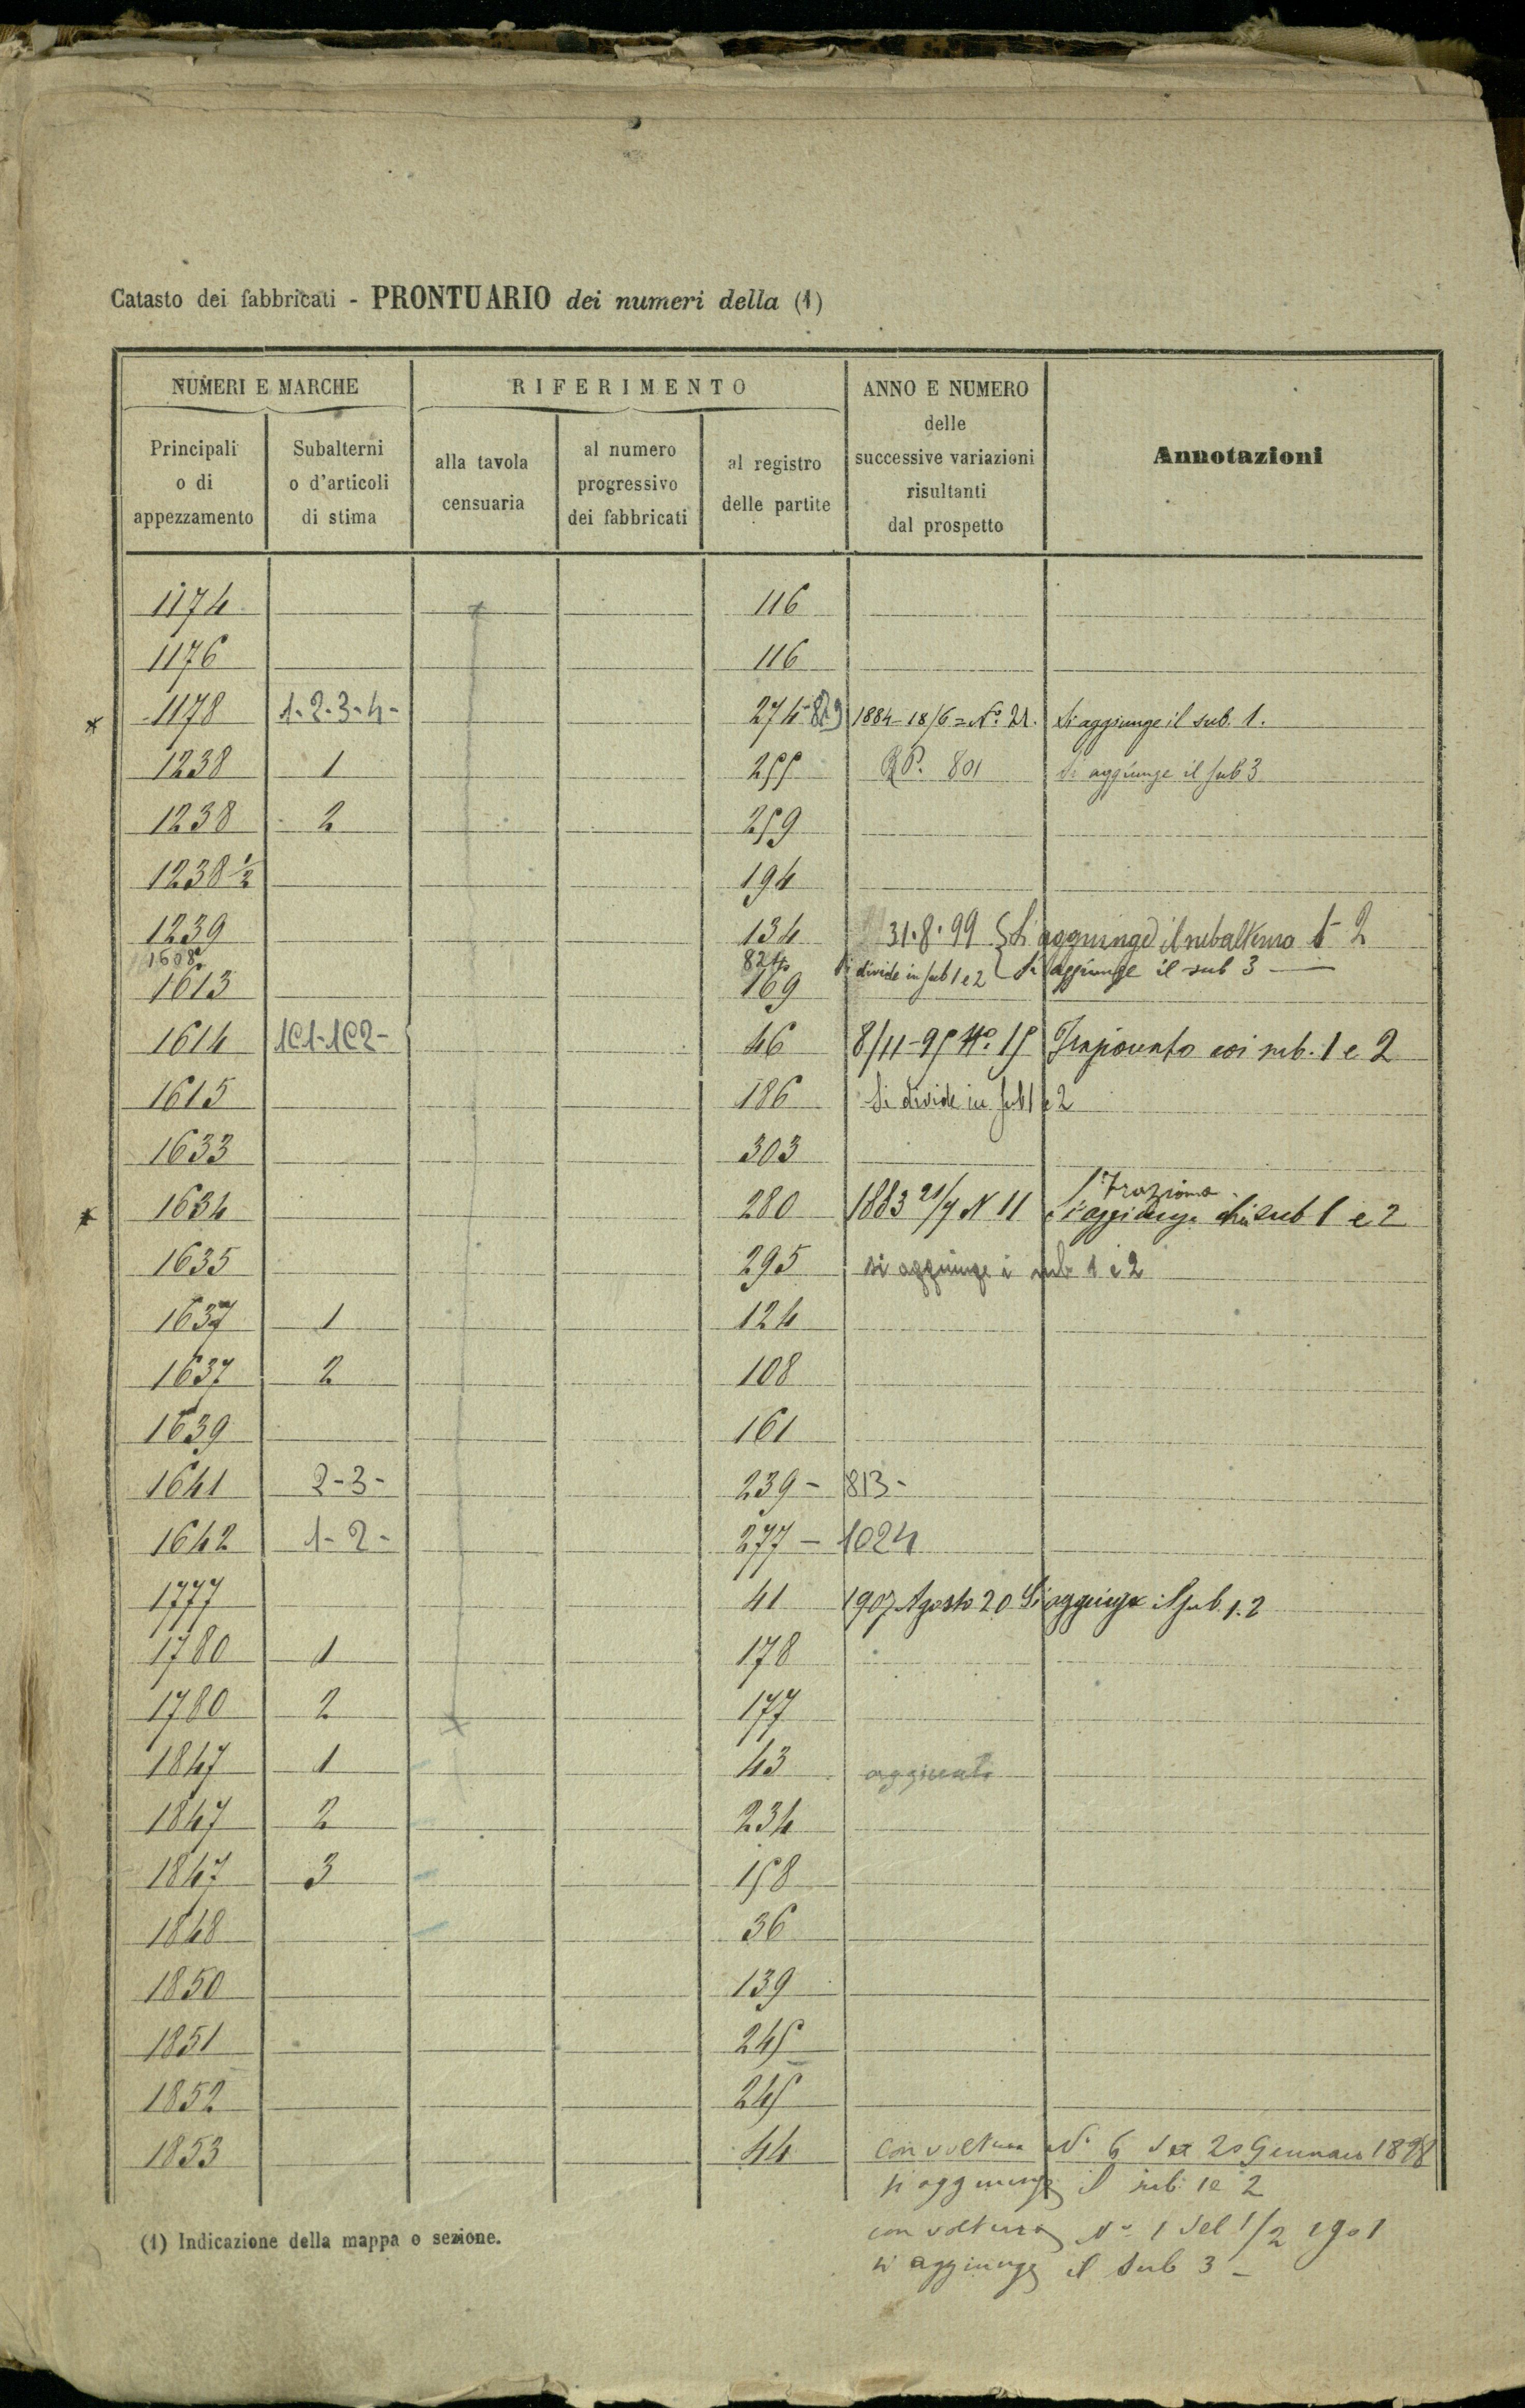 Catasto dei fabbricati - PRONTUARIO dei numeri della (1)
NUMERI E MARCHE
RIFERIMENTO
ANNO E NUMERO
delle
successive variazioni
risultanti
dal prospetto
Annotazioni
Principali
o di
appezzamento
Subalterni
o d'articoli
di stima
alla tavola
censuaria
al numero
progressivo
dei fabbricati
al registro
delle partite
1174 116
1176 116
1178 1-2-3-4- 274-819 1884-18/6=No. 21. Si aggiunge il sub. 1.
1238 1 255 RP. 801 Si aggiunge il sub 3
1238 2 259
1238 1/2 194
1239 134 31.8.99 Si aggiunge il subalterno 1-2
1608 824 Si divide in sub 1 e 2 Si aggiunge il sub 3
1613 169
1614 1C1-1C2- 46 8/11-95 No. 15 coi sub. 1 e 2
1615 186 Si divide in sub 1 e 2
1633 303
1634 280 1883 21/7 N 11 Frazione
e s'aggiunge sub 1 e 2
1635 295 si aggiunge i sub 1 e 2
1637 1 124
1637 2 108
1639 161
1641 2-3- 239- 813-
1642 1-2- 277- 1024
1777 41 1907 Agosto 20 Si aggiunge il sub. 1.2
1780 1 178
1780 2 177
1847 1 43
1847 2 234
1847 3 158
1848 36
1850 139
1851 245
1852 245
1853 44 Con voltura No 6 del 20 Gennaio 1898
si aggiunge il sub 1 e 2
con voltura No 1 del 1/2 1901
si aggiunge il sub 3 -
(1) Indicazione della mappa o sezione.